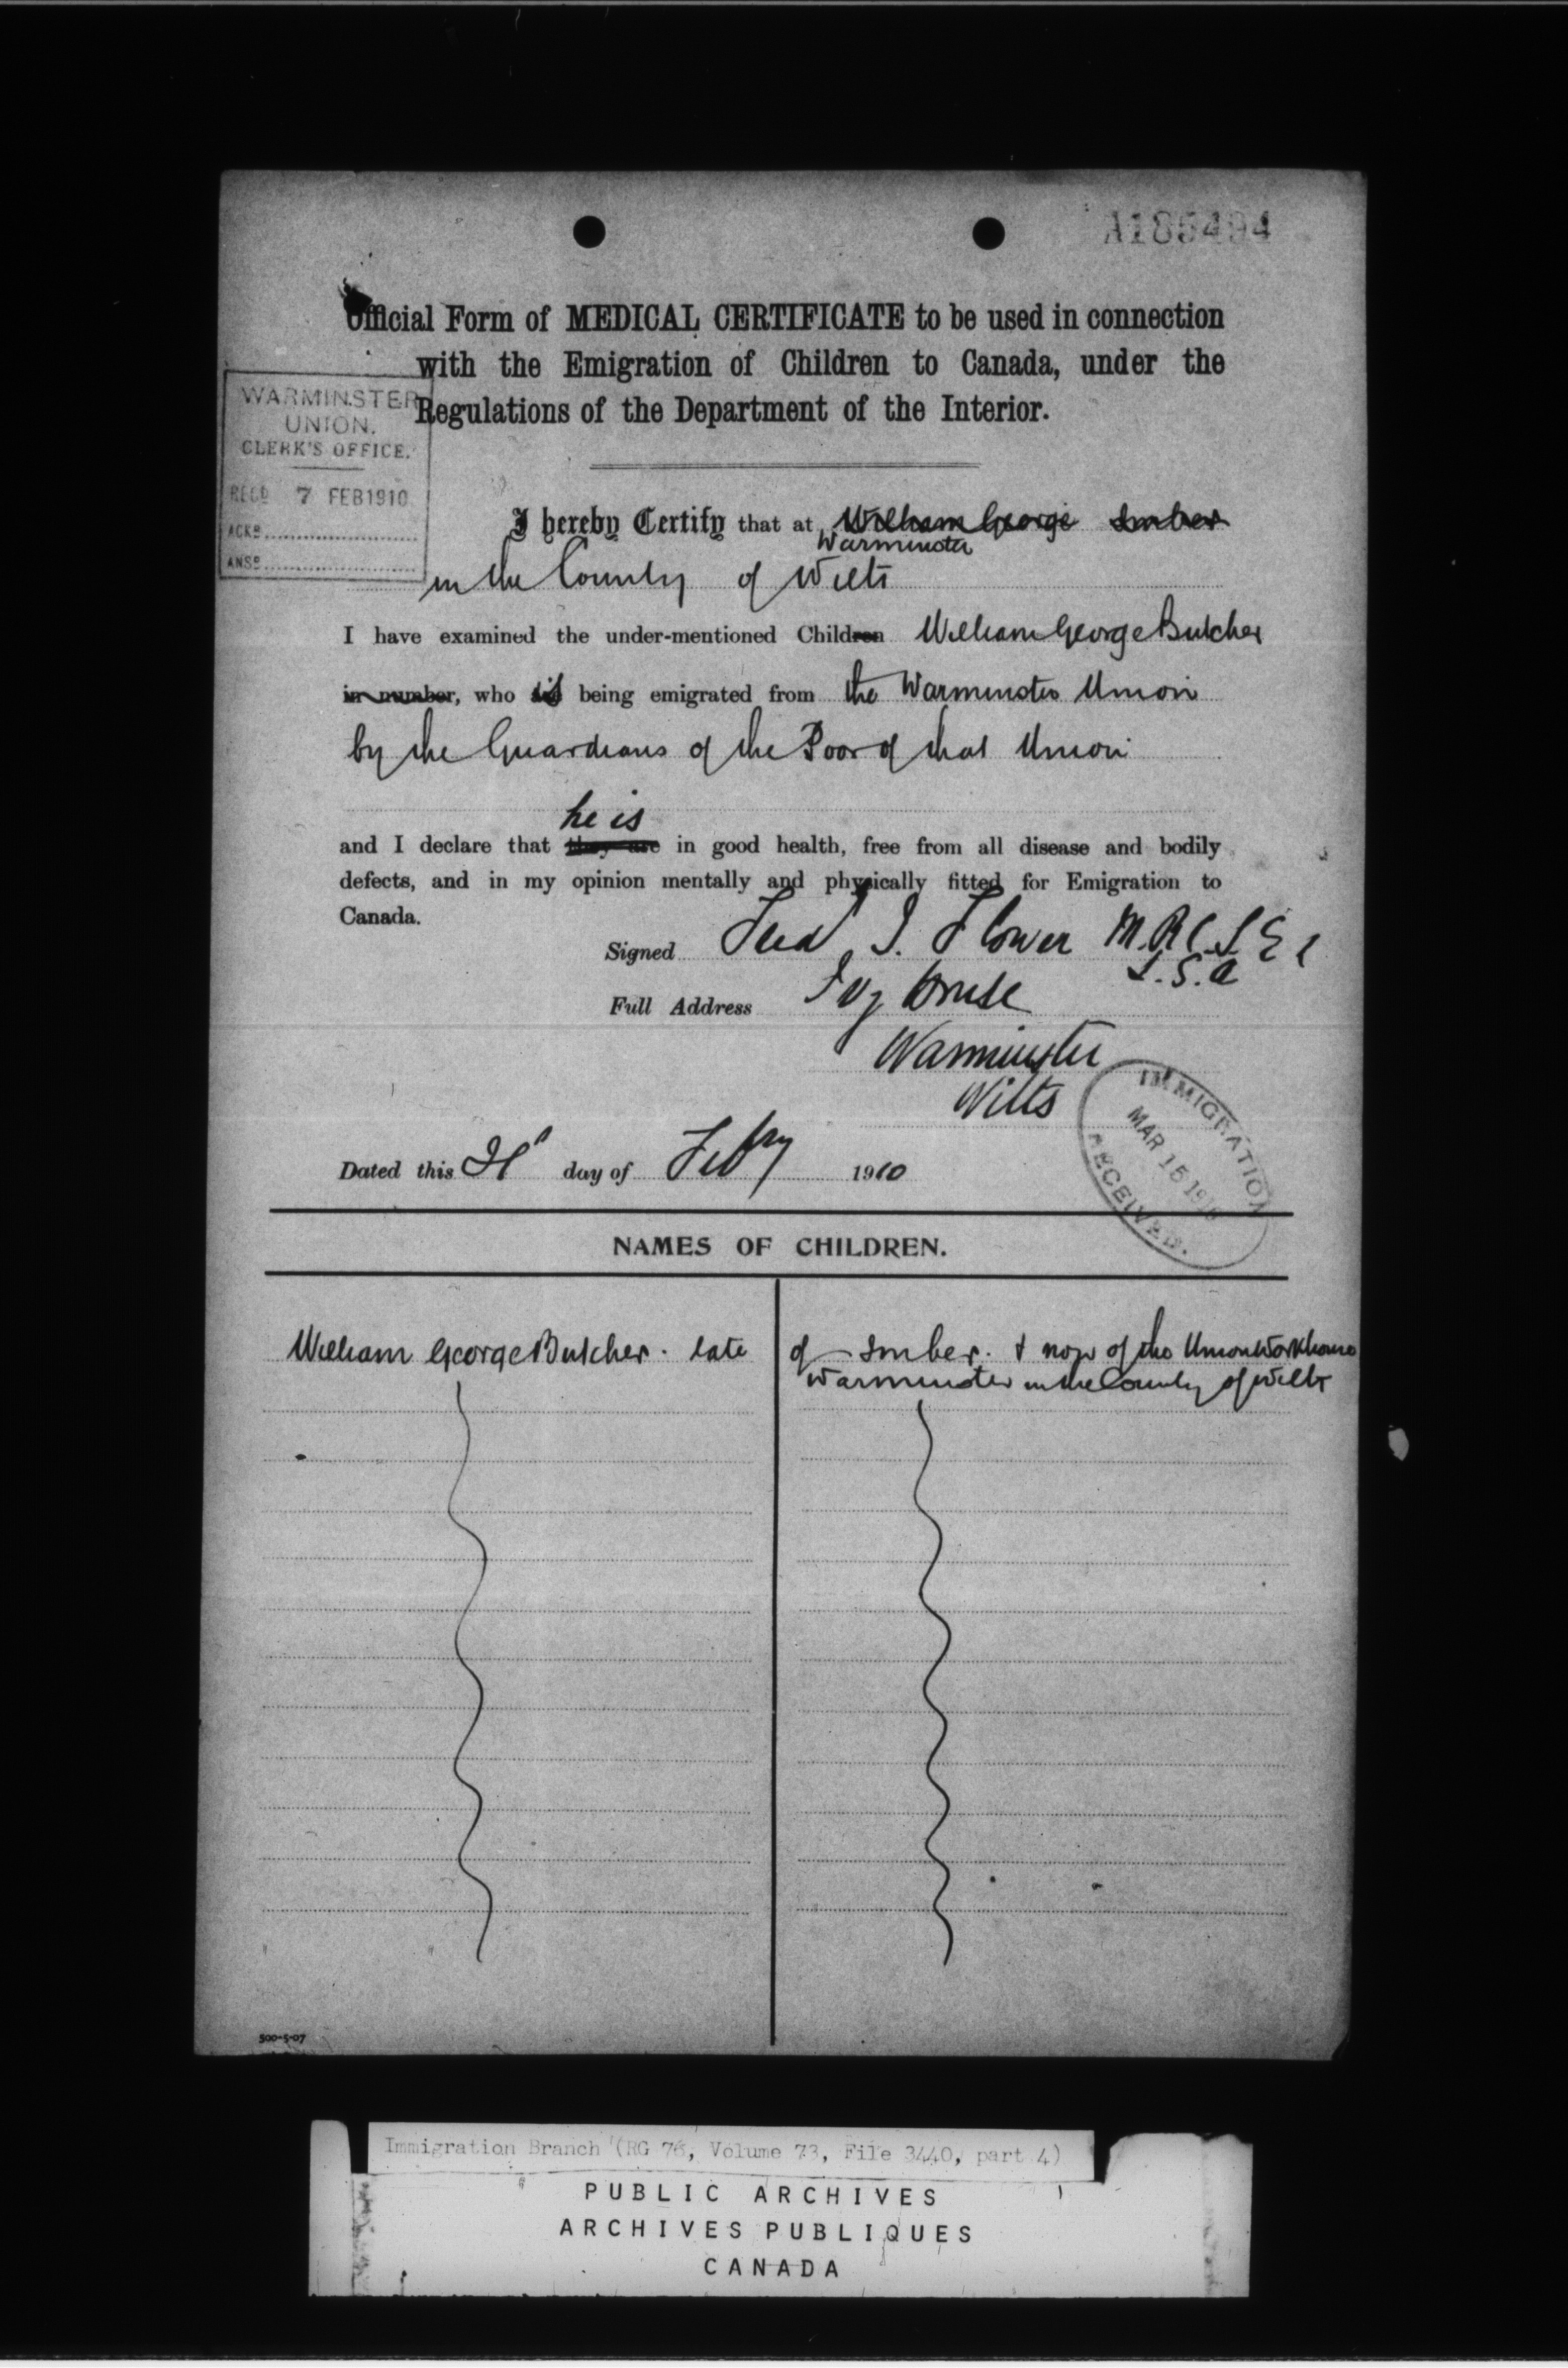 A185494
Official Form of MEDICAL CERTIFICATE to be used in connection
with the Emigration of Children to Canada, under the
Regulations of the Department of the Interior.
WARMINSTER
UNION.
CLERK'S OFFICE.
RECD 7 FEB 1910
ACKD
ANSD
I hereby Certify that at William George Imber
Warminster
in the County of Wilts
I have examined the under-mentioned Children William George Butcher
in number, who is being emigrated from the Warminster Union
by the Guardians of the Poor of that Union
he is
and I declare that they are in good health, free from all disease and bodily
defects, and in my opinion mentally and physically fitted for Emigration to
Canada.
Signed Flower M.R.C.S.E
L.S.A
Full Address Ivy House
Warminster
Wilts
Dated this day of Febry 1910
IMMIGRATION
MAR 15 1910
RECEIVED.
NAMES OF CHILDREN.
William George Butcher. late of Imber. & now of the Union Workhouse
Warminster in the County of Wilts
500-5-07
Immigration Branch (RG 76, Volume 73, File 3440, part 4)
PUBLIC ARCHIVES
ARCHIVES PUBLIQUES
CANADA